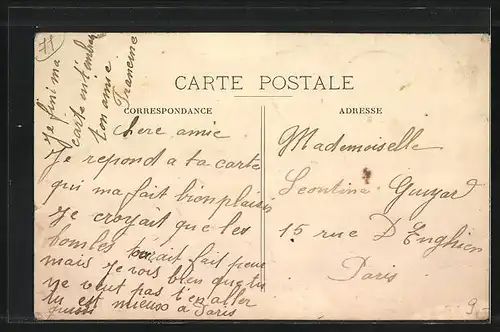 71
CARTE POSTALE
CORRESPONDANCE
ADRESSE
chere amie
Je repond a ta carte
qui ma fait bion plaisir
Je croyait que les
bombes fait peur
mais Je vois bien que tu
ne veut pas t'en aller
tu est mieux a Paris
Je fini ma
carte en t'embr
ton amie
Francine
Mademoiselle
Leontine Guyard
15 rue D'Enghien
Paris
9